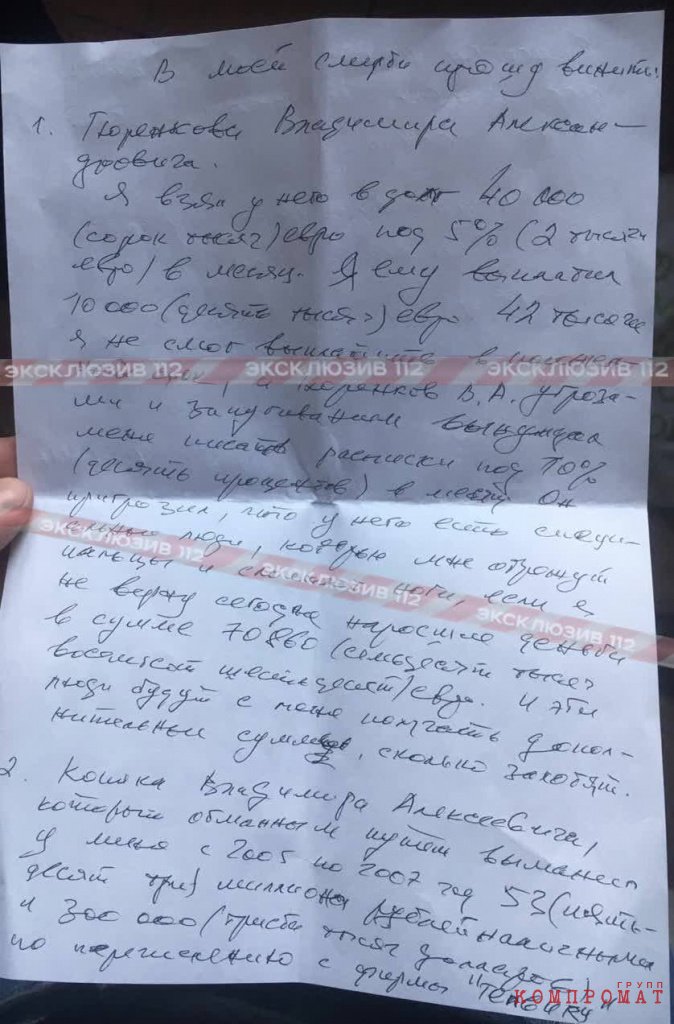 В моей смерти прошу винить:
1. Тюренкова Владимира Алексан-
дровича.
Я взял у него в долг 40 000
(сорок тысяч) евро под 5% (2 тысячи
евро) в месяц. Я ему выплатил
10 000 (десять тысяч) евро 42 тысячи
я не смог выплатить в
ЭКСКЛЮЗИВ 112 ЭКСКЛЮЗИВ 112 ЭКСКЛЮЗИВ 112
и Тюренков В.А. угроза-
ми и запугиванием вынуждал
меня писать расписки под 10%
(десять процентов) в месяц. Он
пригрозил, что у него есть специ-
альные люди, которые мне отрежут
ЭКСКЛЮЗИВ 112 ЭКСКЛЮЗИВ 112 ЭКСКЛЮЗИВ 112
пальцы и ноги, если я
не верну сегодня наросшие деньги
в сумме 70860 (семьдесят тысяч
восемьсот шестьдесят) евро. И эти
люди будут с меня получать допол-
нительные суммы, сколько захотят.
2. Владимира Алексеевича,
который обманным путём выманил
у меня с 2005 по 2007 год 53 (пять-
десят три) миллиона рублей наличными
и 300 000 (триста тысяч долларов)
по перечислению с фирмы
ГРУПП
КОМПРОМАТ